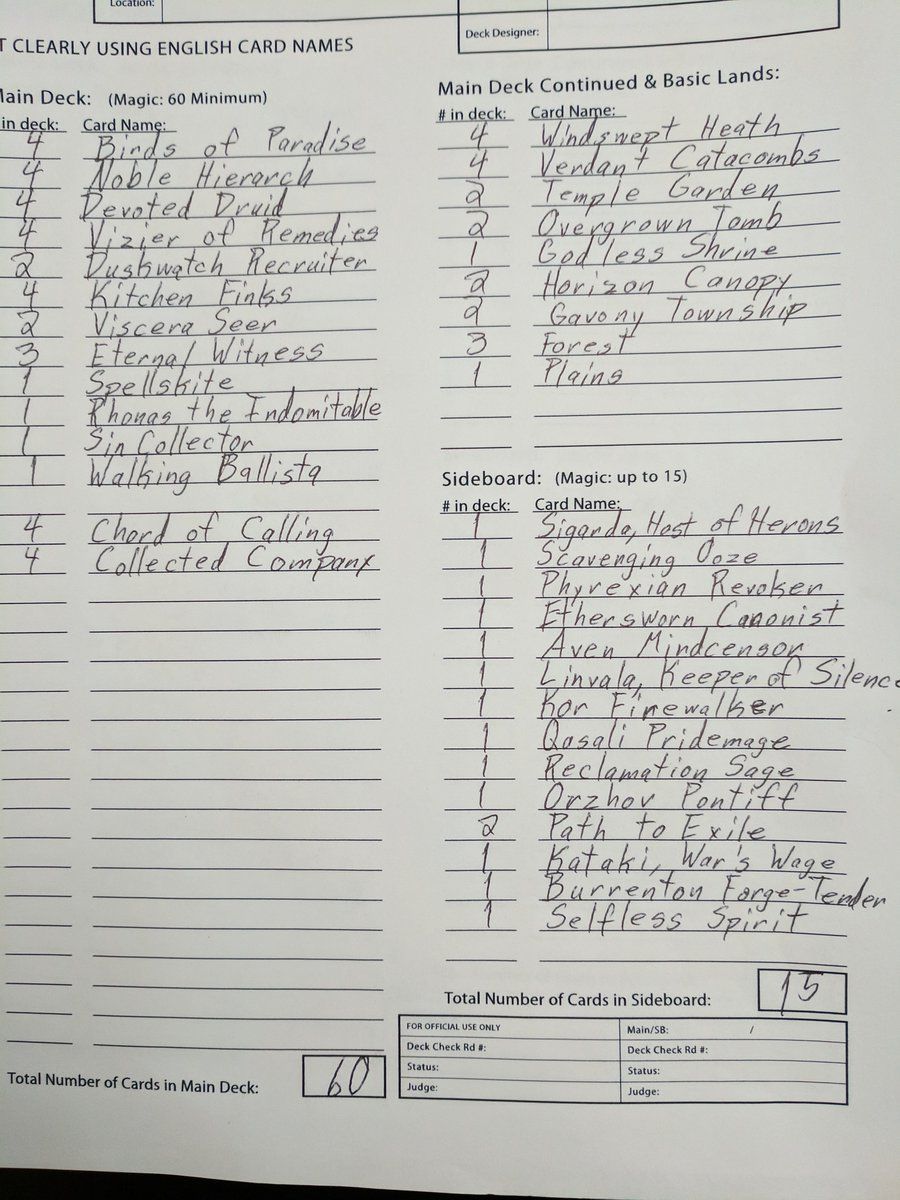 Location:
Deck Designer:
T CLEARLY USING ENGLISH CARD NAMES
Main Deck: (Magic: 60 Minimum)
in deck: Card Name:
4 Birds of Paradise
4 Noble Hierarch
4 Devoted Druid
4 Vizier of Remedies
2 Duskwatch Recruiter
4 Kitchen Finks
2 Viscera Seer
3 Eternal Witness
1 Spellskite
1 Rhonas the Indomitable
1 Sin Collector
1 Walking Ballista
4 Chord of Calling
4 Collected Company
Total Number of Cards in Main Deck: 60
Main Deck Continued & Basic Lands:
# in deck: Card Name:
4 Windswept Heath
4 Verdant Catacombs
2 Temple Garden
2 Overgrown Tomb
1 Godless Shrine
2 Horizon Canopy
2 Gavony Township
3 Forest
1 Plains
Sideboard: (Magic: up to 15)
# in deck: Card Name:
1 Sigarda, Host of Herons
1 Scavenging Ooze
1 Phyrexian Revoker
1 Ethersworn Canonist
1 Aven Mindcensor
1 Linvala, Keeper of Silence
1 Kor Firewalker
1 Qasali Pridemage
1 Reclamation Sage
1 Orzhov Pontiff
2 Path to Exile
1 Kataki, War's Wage
1 Burrenton Forge-Tender
1 Selfless Spirit
Total Number of Cards in Sideboard: 15
FOR OFFICIAL USE ONLY
Deck Check Rd #:
Status:
Judge:
Main/SB: /
Deck Check Rd #:
Status:
Judge: